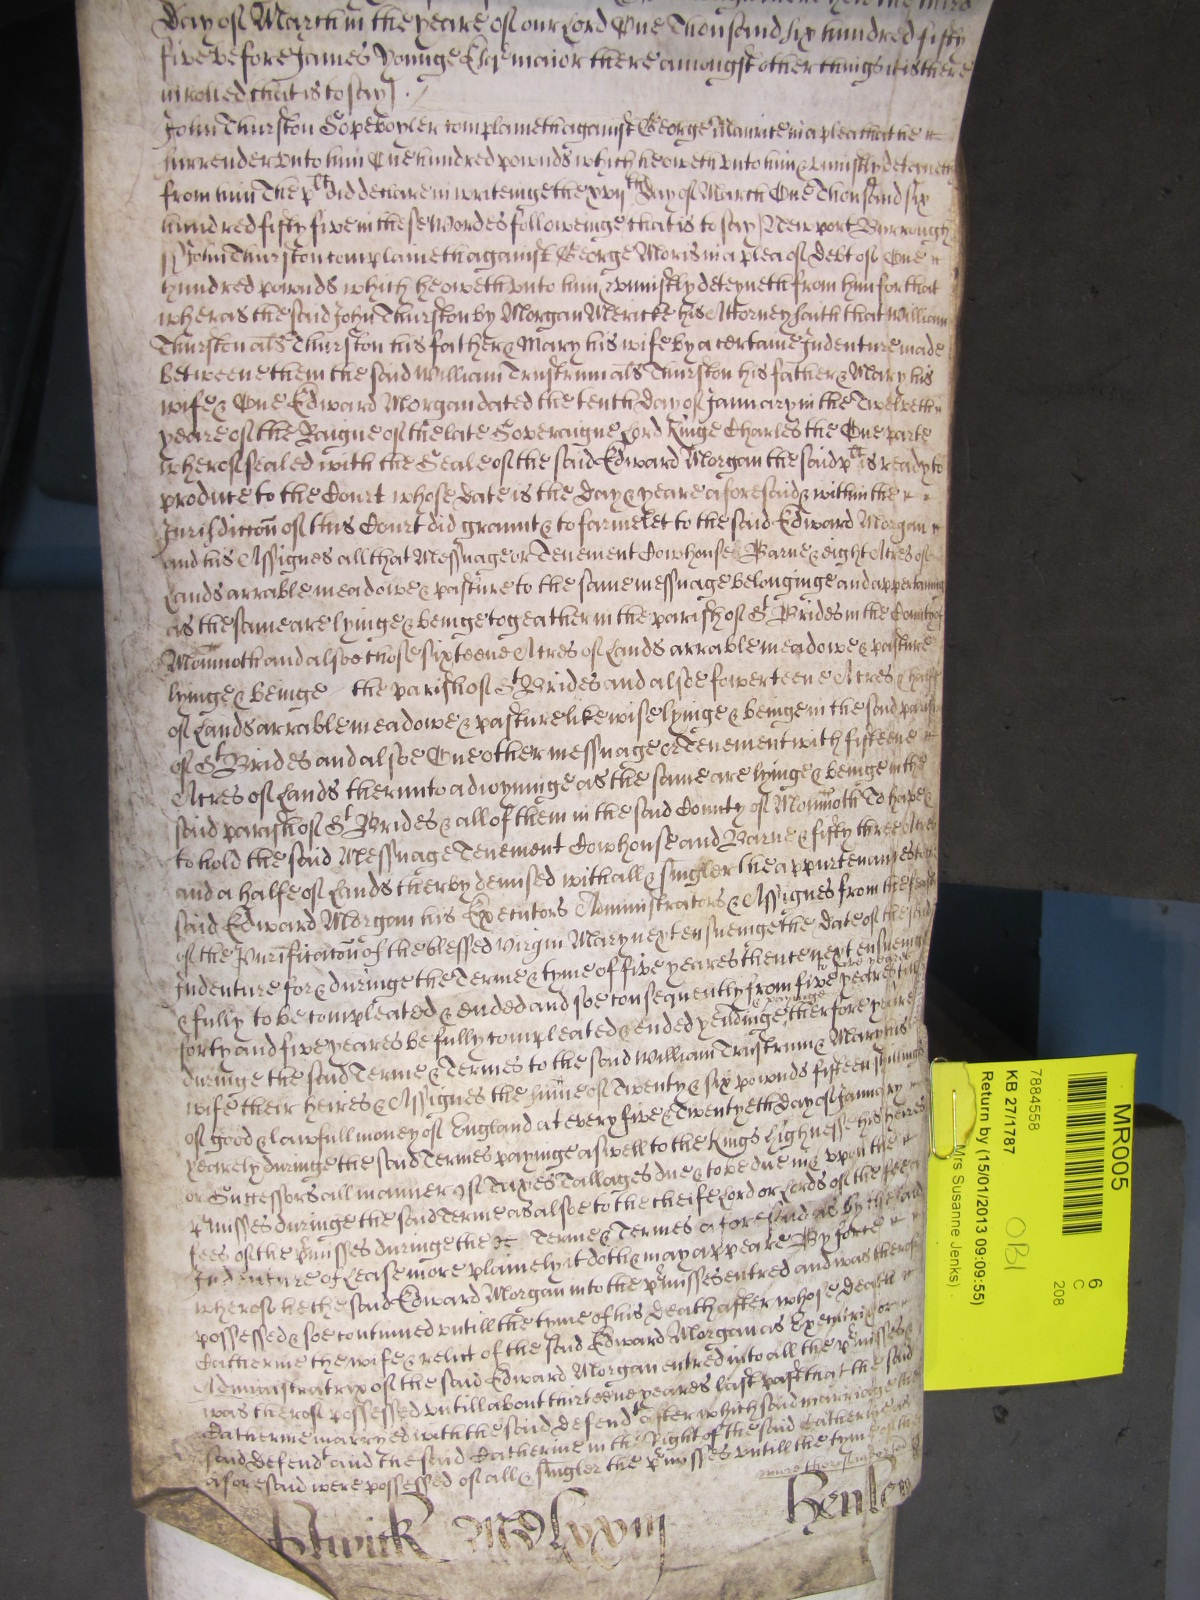 day of March in the yeare of our Lord One Thousand six hundred fifty
five before James Younge Esqr maior there amongst other things it is there
inrolled that is to say] .
John Thurston Sopeboyler complaineth against George Maurice in a plea that he
surrender unto him One hundred pownds which he oweth unto him & uniustly deteyneth
from him The plt did declare in writeinge the xvijth day of March One Thousand six
hundred fifty five in these Wordes followeinge that is to say Newport Burrough
ss John Thurston complaineth against George Moris in a plea of debt of One
hundred pownds which he oweth unto him & uniustly deteyneth from him for that
wheras the said John Thurston by Morgan Mericke his Attorney saith that William
Thurston als Thurston his father & Mary his wife by a certaine Indenture made
betweene them the said William Trustrum als Thurston his father & Mary his
wife & One Edward Morgan dated the tenth day of January in the Twelveth
yeare of the Raigne of the late Soveraigne Lord Kinge Charles the One parte
wherof sealed with the Seale of the said Edward Morgan the said plt is ready to
produce to the Court whose date is the day & yeare aforesaid & within the
Jurisdiccon of this Court did graunt & to farme let to the said Edward Morgan
and his Assignes all that Messuage or Tenement Cowhouse Barne & eight Acres of
Lands arrable meadowe & pasture to the same messuage belonginge and appertaininge
as the same are lyinge & beinge togeather in the parish of St Brides in the County of
Monmoth and alsoe those sixteene Acres of Lands arrable meadowe & pasture
lyinge & beinge the parish of St Brides and alsoe fowerteene Acres & halfe
of Lands arrable meadowe & pasture likewise lyinge & beinge in the said parish
of St Brides and alsoe One other messuage & Tenement with fifteene
Acres of Lands therunto adioyninge as the same are lyinge & beinge in the
said parish of St Brides & all of them in the said County of Monmoth To have &
to hold the said Messuage Tenement Cowhouse and Barne & fifty three Acres
and a halfe of Lands therby demised with all & singler the appurtenances to the
said Edward Morgan his Executors Administrators & Assignes from the feast
of the Purificacon of the blessed virgin Mary next ensueinge the date of the said
Indenture for & duringe the Terme & tyme of five yeares thence next ensueinge
& fully to be compleated & ended and soe consequently from five yeares to five yeares till
forty and five yeares be fully compleated & ended yeildinge & payinge therfore yearely
duringe the said Terme & Termes to the said William Trustrum & Mary his
wife their heires & Assignes the summe of Twenty & six pownds fifteen shillings
of good & lawfull money of England at every five & Twentyeth day of January
yearely duringe the said Termes payinge aswell to the Kings highnesse his heires
or Successors all manner of Taxes Tallages due & to be due in & upon the
pmisses duringe the said Terme as alsoe to the cheife Lord or Lords of the fee or
fees of the pmisses duringe the Terme & Termes aforesaid as by the said
Indenture of Lease more plainely it doth & may appeare By force
wherof he the said Edward Morgan into the pmisses entred and was therof
possessed & soe continued untill the tyme of his death after whose death
Catherine the wife & relict of the said Edward Morgan as Executrix or
Administratrix of the said Edward Morgan entred into all the pmisses &
was therof possessed untill about thirteene yeares last past that the said
Catherine marryed with the said defendt after which said marriage the
said defendt and the said Catherine in the Right of the said Catherine as
aforesaid were possessed of all & singler the pmisses untill the tyme of the
MDLxxiij
Henley
MR005
6
C
208
7884558
KB 27/1787
OBI
Return by (15/01/2013 09:09:55)
Mrs Susanne Jenks)